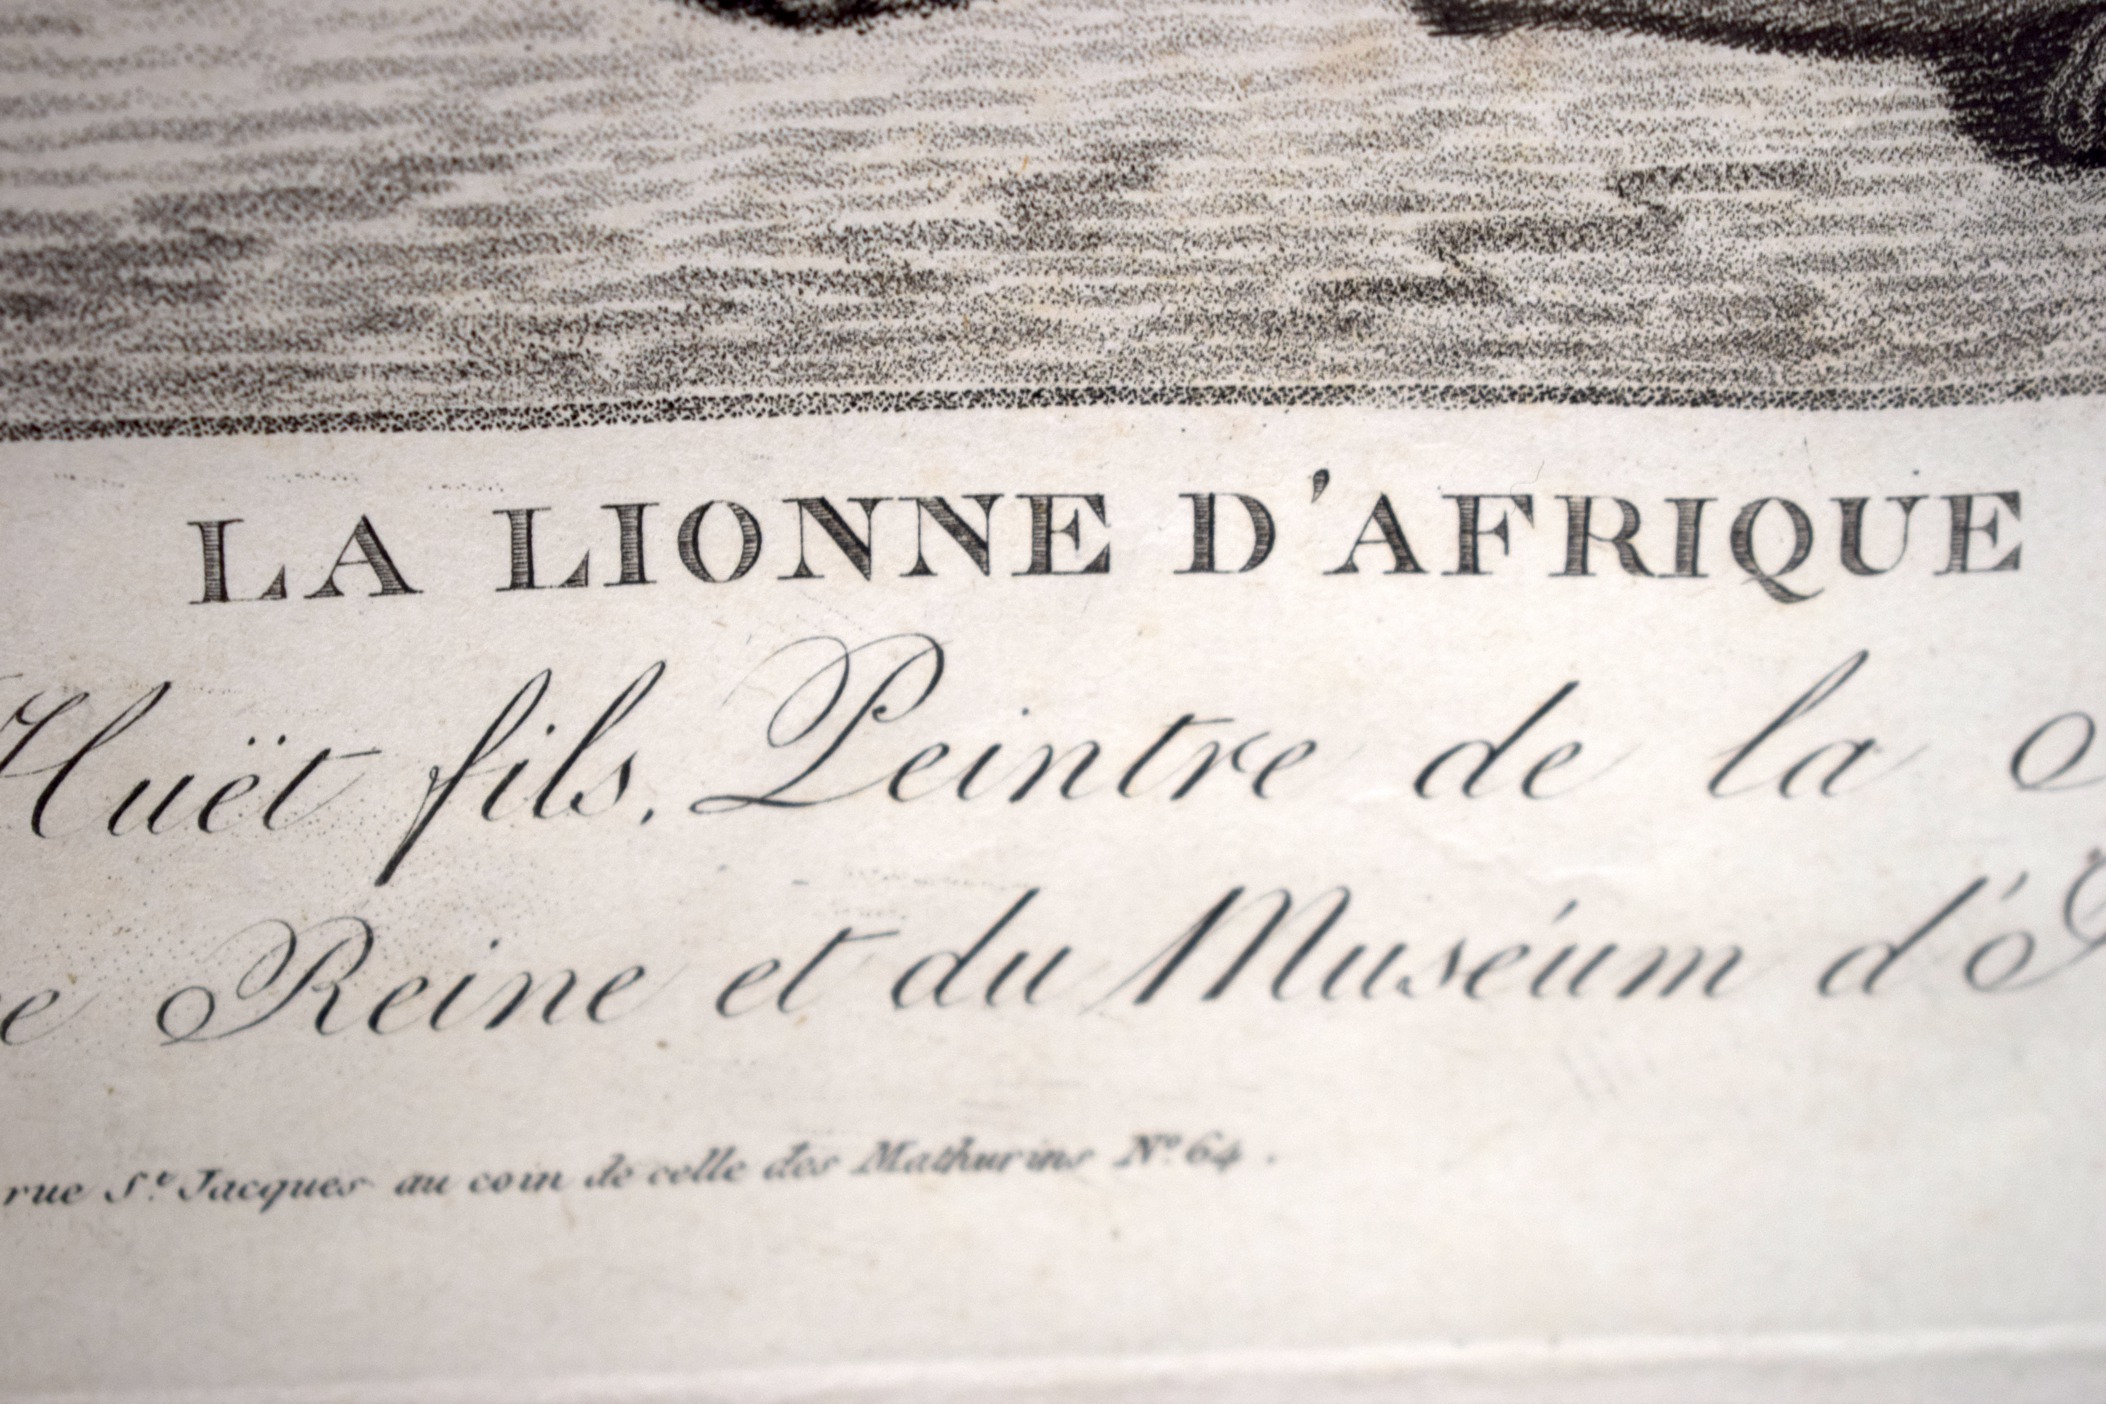 LA LIONNE D'AFRIQUE
Huët fils, Peintre de la
Reine et du Muséum
rue St. Jacques au coin de celle des Mathurins No. 64.